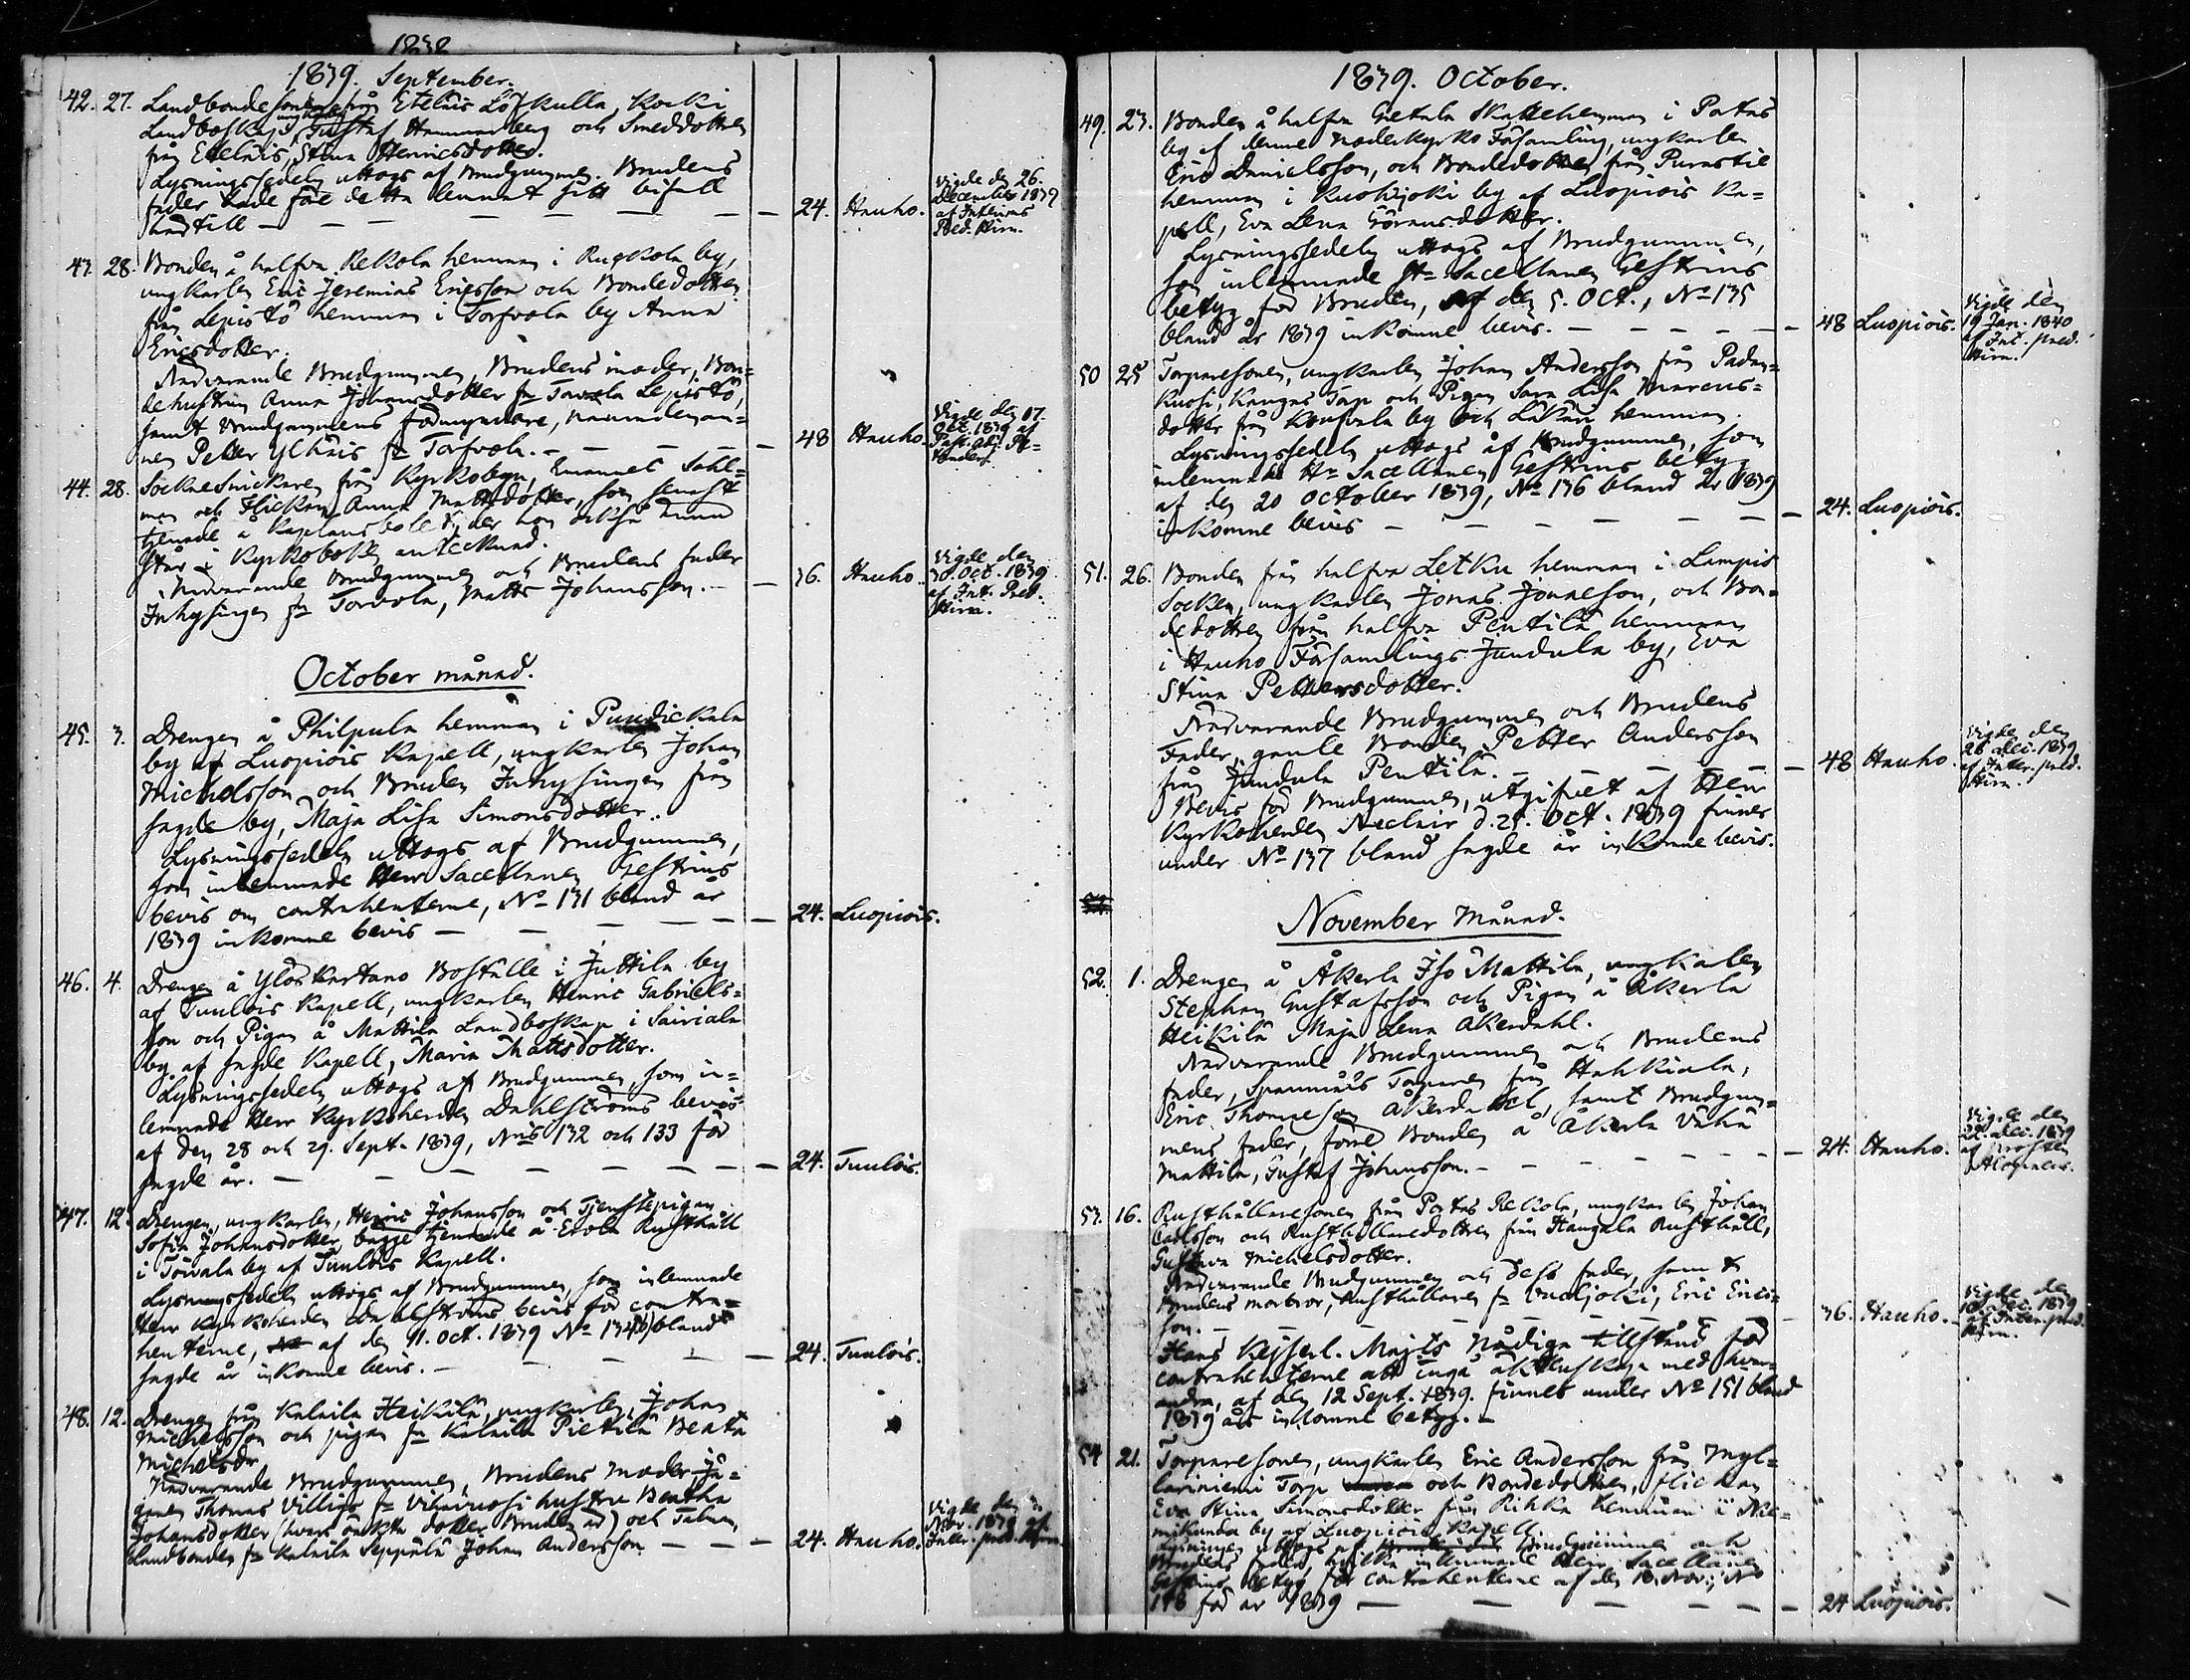 1838
1839. September.
42. 27. Landbonde sonen från Etelais Löfkulla, Kocki
Landboskap, ungkarlen Gustaf Hammarberg och Smeddottren
från Etelais, Stina Henricsdotter.
Lysningssedeln uttogs af Brudgummen. Brudens
fader hade före detta lemnat sitt bifall
härtill — — — — — — — 24. Hauho. Vigde den 26.
December 1839
af Interims
Pred. Hirn.
43. 28. Bonden å halfva Rekola hemman i Ruokola by,
ungkarlen Eric Jeremias Ericsson och Bondedottren
från Lepistö hemman i Torfvola by Anna
Ericsdotter.
Närvarande Brudgummen, Brudens moder, Bon=
dehustrun Anna Johansdotter fr. Lepistö,
samt Brudgummens förmyndare, nämndeman=
nen Petter Ylhäis fr. Torfvola. — — — — 48 Hauho. Vigde den 17.
Oct. 1839 af
44. 28. Sockne Snickaren från Kyrkobyn, Emanuel Sahl=
man och Flickan Anna Mattsdotter, som senast
tjenade å Kaplansbolet, der hon också ännu
står i Kyrkoboken antecknad.
Närvarande Brudgummen och Brudens fader
Inhysingen fr. Torvola, Matts Johansson. — — 36. Hauho. Vigde den
30. Oct. 1839
af Int. Pred.
Hirn.
October månad.
45. 3. Drengen å Philpula hemman i
by af Luopiois Kapell, ungkarlen Johan
Michelsson och Bruden Inhysingen från
sagde by, Maja Lisa Simonsdotter.
Lysningssedeln uttogs af Brudgummen,
som inlemnade Herr Sacellanen Gestrins
bevis om contrahenterne, No 131 bland år
1839 inkomne bevis — — — — — 24. Luopiois.
46. 4. Drengen å Ylöskartano Boställe i Juttila by
af Tuulois Kapell, ungkarlen Henric Gabriels=
son och Pigan å Mattila Landboskap i Sairiala
by af sagde Kapell, Maria Mattsdotter.
Lysningssedeln uttogs af Brudgummen, som in=
lemnade Herr Kyrkoherden Dahlströms bevis
af den 28 och 29. Sept. 1839, Nris 132 och 133 för
sagde år. — — — — — — 24. Tuulois.
47. 12. Drengen, ungkarlen, Henric Johansson och Tjenstepigan
Sofia Johansdotter, bägge tjenande å Erola Rusthåll
i Toivala by af Tuulois Kapell.
Lysningssedeln uttogs af Brudgummen, som inlemnade
Herr Kyrkoherden Dahlströms bevis för contra=
henterne, af den 11. Oct. 1839 No 134 bland
sagde år inkomne bevis. — — — — 24. Tuulois.
48. 12. Drengen från Kalaila Heikilä, ungkarlen, Johan
Michelsson och pigan fr. Kalaila Pietilä Beata
Michelsdr
Närvarande Brudgummen, Brudens moder
Thomas Villigs fr. hustru Beatha
Johansdotter (hvars oäkta dotter Bruden är) och Talman,
Landbonden fr. Kalaila Seppälä Johan Andersson — — — 24. Hauho. Vigde den
Nov. 1839 af
Inter. pred. Hirn.
1839. October.
49. 23. Bonden å halfva Gretula Skattehemman i Portas
by af denne Moderkyrko Församling, ungkarlen
Eric Danielsson, och Bondedottren från Purastie
hemman i Kuohijoki by af Luopiois Ka=
pell, Eva Lena Göransdotter.
Lysningssedeln uttogs af Brudgummen,
som inlemnade Hr Sacellanen Gestrins
betyg för Bruden, af den 5. Oct., No 135
bland år 1839 inkomne bevis. — — — — — 48 Luopiois. Vigde den
19 Jan. 1840
af Int. pred.
Hirn.
50 25 Torparesonen, ungkarlen Johan Andersson från Padan=
kuoosi, Kangas Torp och Pigan Sara Lisa Marcus=
dotter från by och hemman.
Lysningssedeln uttogs af Brudgummen, som
inlemnade Hr Sacellanen Gestrins betyg
af den 20 October 1839, No 136 bland år 1839
inkomne bevis — — — — — — 24. Luopiois.
51. 26. Bonden från halfva Letku hemman i Lampis
Socken, ungkarlen Jonas Jonasson, och Bon=
dedottren från halfva Pentilä hemman
i Hauho Församlings Jundula by, Eva
Stina Pettersdotter.
Närvarande Brudgummen och Brudens
Fader, gamle Bonden Petter Andersson
från Jundula Pentilä. — — — — — 48 Hauho. Vigde den
26 Dec. 1839
af Inter. pred.
Hirn.
Bevis för Brudgummen, utgifvet af Herr
Kyrkoherden d. 25. Oct. 1839 finnes
under No 137 bland sagde år inkomne bevis.
November månad.
52. 1. Drengen å Åkerla Iso Mattila, ungkarlen
Stephan Gustafsson och Pigan å Åkerla
Heikilä Maja Lena Åkerdahl.
Närvarande Brudgummen och Brudens
fader, Spannmåls Torparen från Hahkiala,
Eric Thomasson Åkerdahl, samt Brudgum=
mens fader, förre Bonden å Åkerla Vähä
Mattila, Gustaf Johansson. — — — — — 24. Hauho. Vigde den
22. Dec. 1839
af Prosten
53. 16. Rusthållaresonen från Portas Rekola, ungkarlen Johan
Carlsson och Rusthållaredottren från Haugala Rusthåll,
Gustava Michelsdotter.
Närvarande Brudgummen och dess fader, samt
Brudens morbror, Rusthållaren fr. Vuolijoki, Eric Erics=
son. — — — — — — 36. Hauho. Vigde den
Dec. 1839
af Inter. pred.
Hirn.
Hans Kejserl. Majts Nådiga tillstånd för
contrahenterne att ingå äktenskap med hvar=
andra, af den 12 Sept. 1839. finnes under No 151 bland
1839 års inkomne betyg. —
54 21. Torparesonen, ungkarlen Eric Andersson från Myl=
lyniemi Torp och Bondedottren, flickan
Eva Stina Simonsdotter från Rihko hemman i
by af Luopiois Kapell
Lysningen uttogs af Brudgummen och
Brudens fader, hvilka inlemnade Herr Sacellanen
Gestrins betyg för contrahenterne af den Nov., No
148 för år 1839 — — — — — 24 Luopiois.